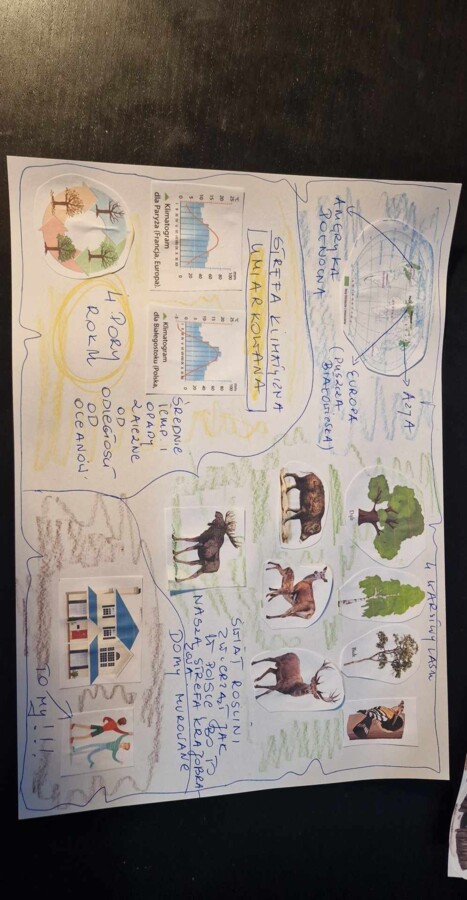 STREFA KLIMATYCZNA
UMIARKOWANA
AMERYKA
PÓŁNOCNA
EUROPA
(PUSZCZA
BIAŁOWIESKA)
AZJA
Klimatogram
dla Paryża (Francja, Europa).
Klimatogram
dla Białegostoku (Polska,
4 PORY
ROKU
ŚREDNIE
TEMP I
OPADY
ZALEŻNE
OD
ODLEGŁOŚCI
OD
OCEANÓW.
4 WARSTWY LASU
Dąb
Buk
ŚWIAT ROŚLIN I
ZWIERZĄT JAK
W POLSCE BO TO
NASZA STREFA KRAJOBRA-
ZOWA
DOMY MUROWANE
TO MY!!!